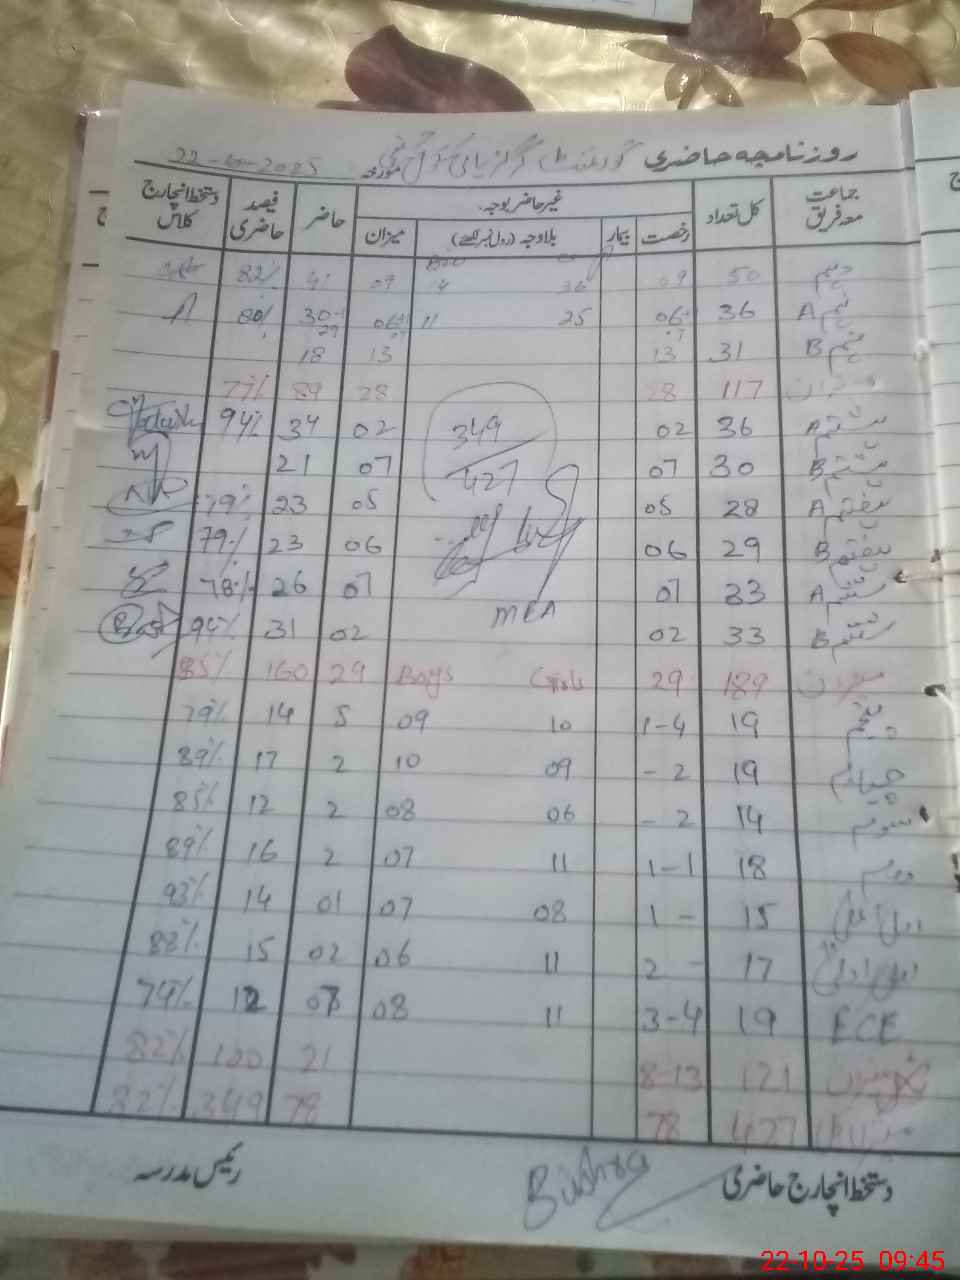 روزنامچہ حاضری گورنمنٹ گرلز ہائی سکول مورخہ 22-10-2025
جماعت معہ فریق کل تعداد غیر حاضر بوجہ۔ حاضر فیصد حاضری دستخط انچارج کلاس
رخصت بیمار بلاوجہ (رول نمبر لکھیے) میزان
دہم 50 09 36 14 09 41 82%
نہم A 36 06+1 25 11 06+1 30-1 29 80%
نہم B 31 13 13 18
میزان 117 28 28 89 77%
ہشتم A 36 02 02 34 94%
349
427
ہشتم B 30 07 07 21
ہفتم A 28 05 05 23 79%
ہفتم B 29 06 06 23 79%
ششم A 33 07 07 26 78%
MEA
ششم B 33 02 02 31 94%
میزان 189 29 Girls Boys 29 160 85%
پنجم 19 1-4 10 09 5 14 79%
چہارم 19 - 2 09 10 2 17 89%
سوئم 14 - 2 06 08 2 12 85%
دوئم 18 1-1 11 07 2 16 89%
اول اعلیٰ 15 1 - 08 07 01 14 93%
اول ادنیٰ 17 2 - 11 06 02 15 88%
ECE 19 3-4 11 08 07 12 74%
میزان 121 8-13 21 100 82%
میزان کل 427 78 78 349 82%
دستخط انچارج حاضری Bushra رئیس مدرسہ
22-10-25 09:45